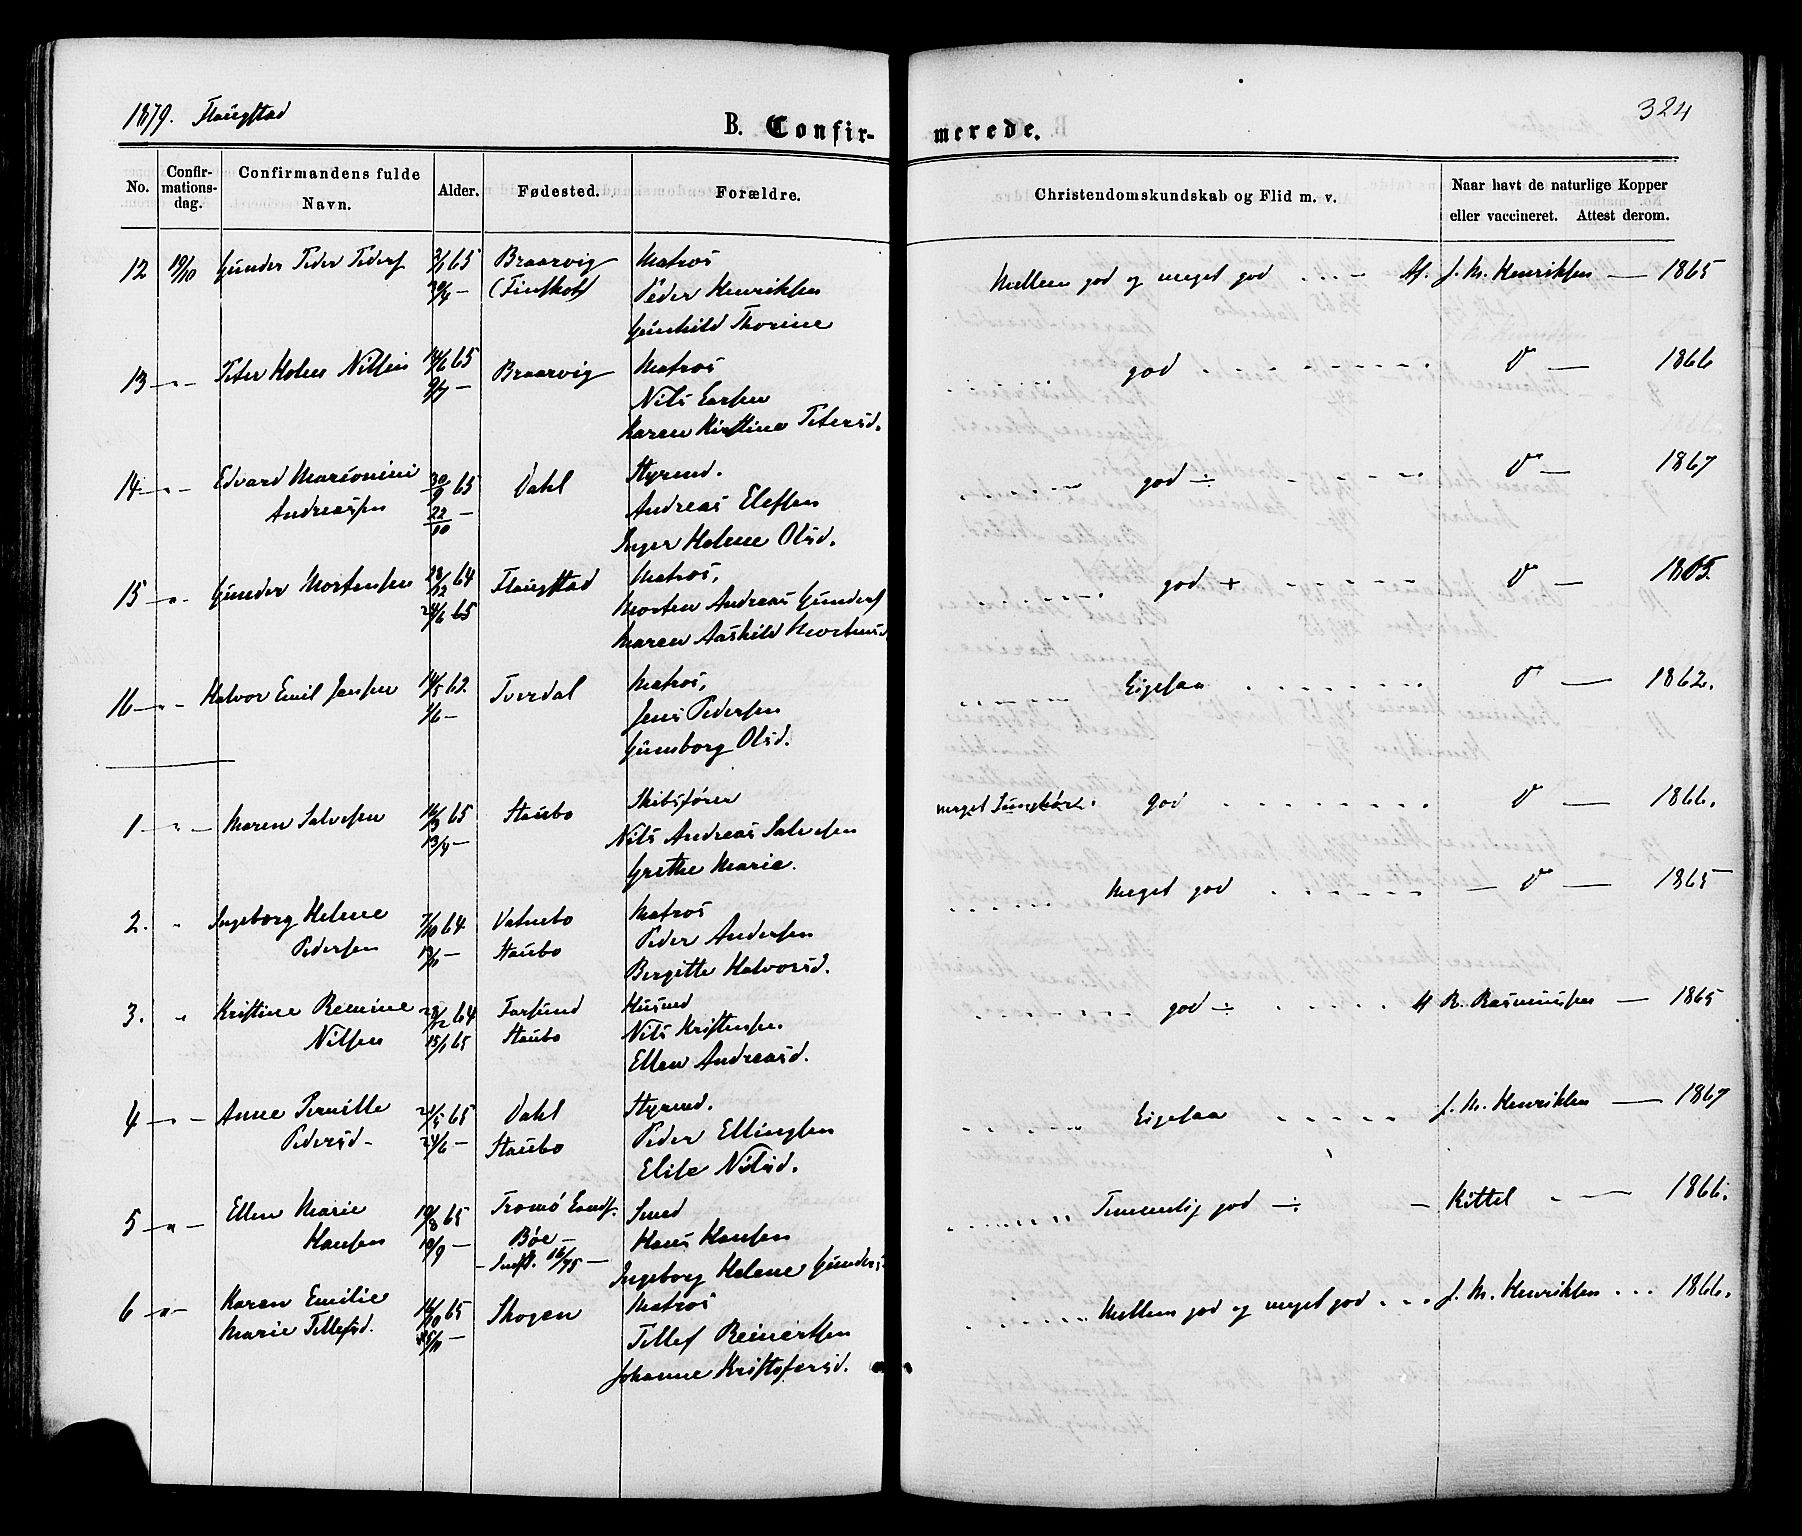 1879. Flaugstad
324
B. Confir- merede.
No. Confir-mations-dag. Confirmandens fulde Navn. Alder. Fødested. Forældre. Christendomskundskab og Flid m. v. Naar havt de naturlige Kopper eller vaccineret. Attest derom.
12 19/10 Gunder Peder Peders 65 Braarvig Matros Mellem god og meget god At. J. M. Henriksen — 1865
— (Finskot) Peder Henriksen
Gunhild Thorine
13 — " — Peter Holm Nilsen 14/6 65 Braarvig Matros god 0 — 1866
9/7 — Nils Larsen
Karen Kirstine Petersd.
14 — " — Edvard Marsonini 30/9 65 Dahl Styrmd. god ÷ 0 — 1867
Andreassen 22/10 — Andreas Elefsen
Inger Helene Olsd.
15 " — Gunder Mortensen 28/12 64 Flaugstad Matros, god + 0 — 1865.
24/6 65 Morten Andreas Gunders
Maren Aashild Mortensd
16 — " — Halvor Emil Jensen 14/5 62. Tverdal Matros, Eigesaa 0 — 1862.
1/6 — Jens Pedersen
Gunborg Olsd.
1 " — Maren Salvesen 16/3 65 Staubo Skibsfører meget god 0 — 1866.
13/4 — Nils Andreas Salvesen
Grethe Marie.
2. " Ingeborg Helene 7/10 64 Vatnebo Matros Meget god — 0 — 1865
Pedersen 13/11 — Staubo Peder Andersen
Bergitte Halvorsd.
3. " Kristine Bernine 28/12 64 Farsund Husmd god ÷ At R. Rasmussen — 1865
Nilsen 15/1 65 Staubo Nils Kristensen.
Ellen Andreasd.
4 — " — Anne Pernille 21/5 65 Dahl Styrmd. Eigesaa J. M. Henriksen — 1867
Pedersd — 24/6 — Staubo Peder Ellingsen
Elise Nilsd.
5 — " — Ellen Marie 19/8 65 Tromø Lands. Smed Temmelig god ÷ — Kittel — 1866.
Hansen 10/9 — Bøe — Hans Hansen
— Indfl. 16/75 — Ingeborg Helene Gunders
6 " — Karen Emilie 14/10 65 Skogen Matros Mellem god og meget god J. M. Henriksen 1866.
Marie Tellefsd. 25/11 — Tellef Reinertsen
Johanne Kristofersd.